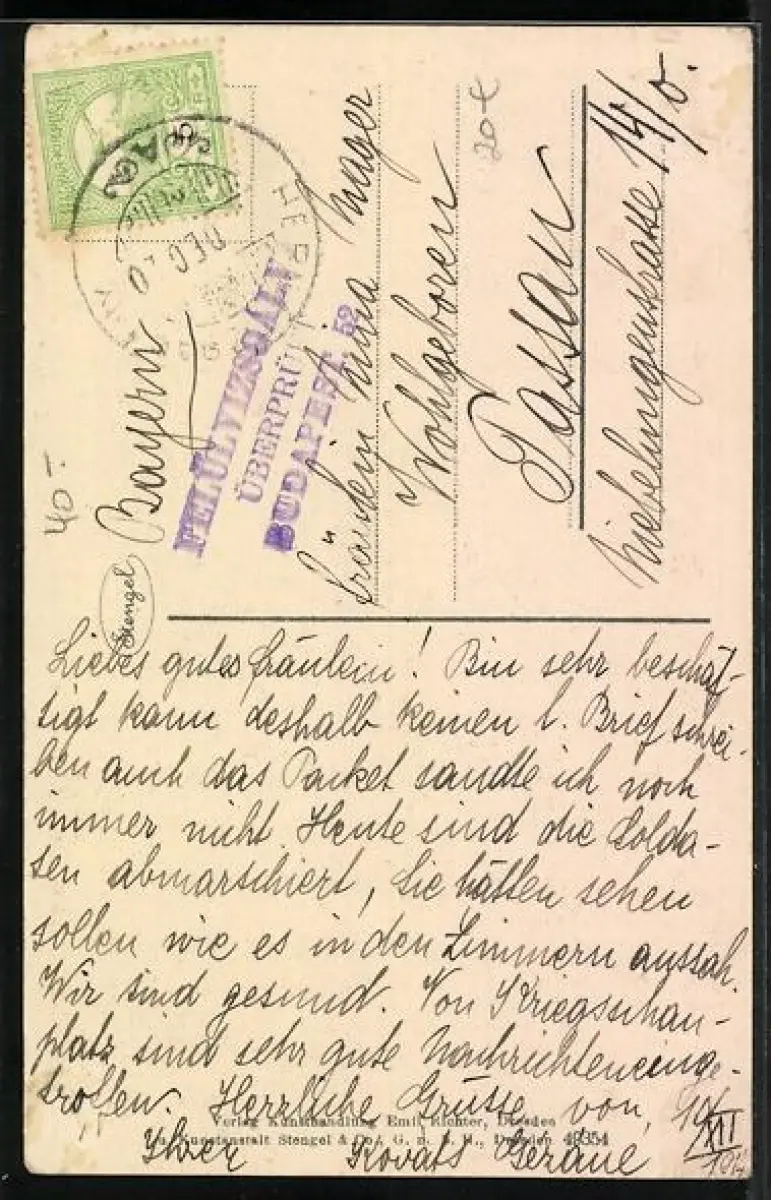 Bayern
FELÜLVIZSGÁLV
ÜBERPRÜ
BUDAPEST. 52
Fräulein Mager
Wohlgeboren
Passau
Niebelungenstrasse 14/0.
20€
40.-
Stengel
Liebes gutes Fräulein! Bin sehr beschäf-
tigt kann deshalb keinen l. Brief schrei-
ben auch das Packet sandte ich noch
immer nicht. Heute sind die Solda-
ten abmarschiert, Sie hätten sehen
sollen wie es in den Zimmern aussah.
Wir sind gesund. Von Kriegsschau-
platz sind sehr gute Nachrichten einge-
troffen. Herrliche Grüsse von, 10/XII
Ihrer Kovats Gézáne
Verlag Kunsthandlung Emil Richter, Dresden
Kunstanstalt Stengel & Co., G. m. b. H., Dresden 49354